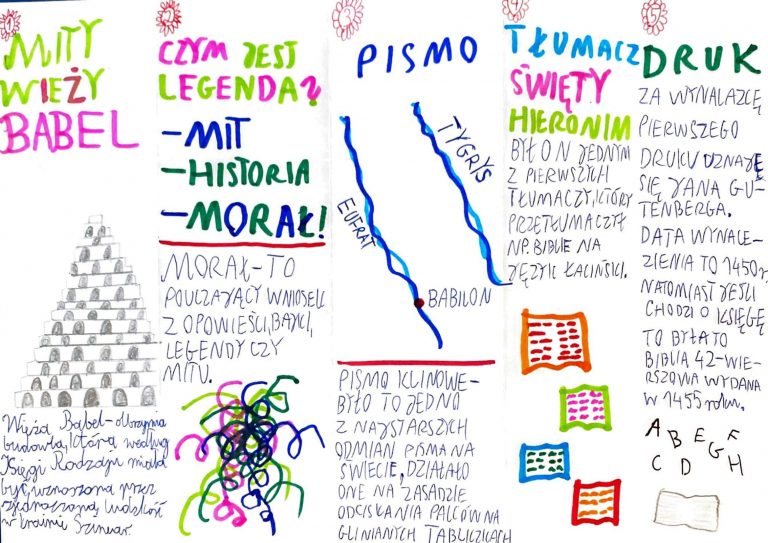 1
MITY
WIEŻY
BABEL
Wieża Babel-olbrzymia
budowla, którą według
Księgi Rodzaju miała
być wznoszona przez
zjednaczoną ludzkość
w krainie Szinear.
2
CZYM JEST
LEGENDA?
-MIT
-HISTORIA
-MORAŁ!
MORAŁ-TO
POUCZAJĄCY WNIOSEK
Z OPOWIEŚCI, BAJKI,
LEGENDY CZY
MITU.
3
PISMO
TYGRYS
EUFRAT
BABILON
PISMO KLINOWE-
BYŁO TO JEDNO
Z NAJSTARSZYCH
ODMIAN PISMA NA
ŚWIECIE, DZIAŁAŁO
ONE NA ZASADZIE
ODCISKANIA PALCÓW NA
GLINIANYCH TABLICZKACH
4
TŁUMACZ
ŚWIĘTY
HIERONIM
BYŁ ON JEDNYM
Z PIERWSZYCH
TŁUMACZY, KTÓRY
PRZETŁUMACZYŁ
NP. BIBLIE NA
JĘZYK ŁACIŃSKI.
5
DRUK
ZA WYNALAZCĘ
PIERWSZEGO
DRUKU UZNAJĘ
SIĘ JANA GU-
TENBERGA.
DATA WYNALE-
ZIENIA TO 1450r,
NATOMIAST JEŚLI
CHODZI O KSIĘGĘ
TO BYŁA TO
BIBLIA 42-WIE-
RSZOWA WYDANA
W 1455 roku.
A B E G F
C D H